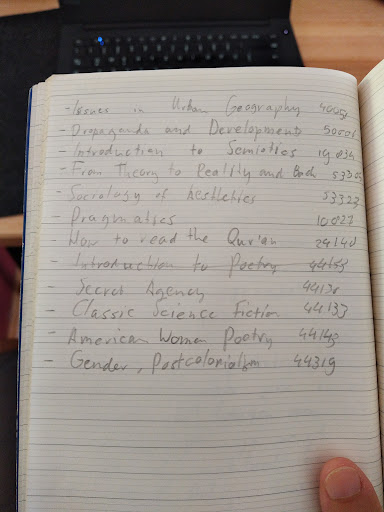 - Issues in Urban Geography
- Propaganda and Development
- Introduction to Semiotics 19034
- From Theory to Reality and Back
- Sociology of Aesthetics 53323
- Pragmatics 10027
- How to read the Qur'an 24140
- Introduction to Poetry
- Secret Agency
- Classic Science Fiction 44133
- American Women Poetry
- Gender, Postcolonialism 44319